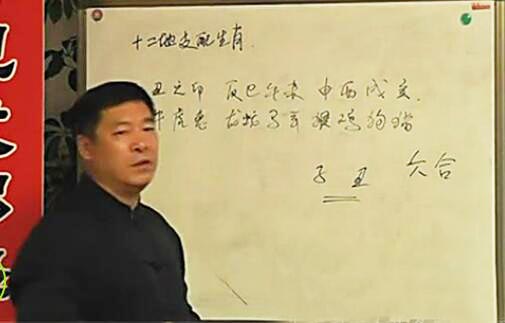 十二地支配生肖.
丑寅卯 辰巳午未 申酉戌亥.
牛虎兔 龙蛇马羊 猴鸡狗猪
子 丑 六合